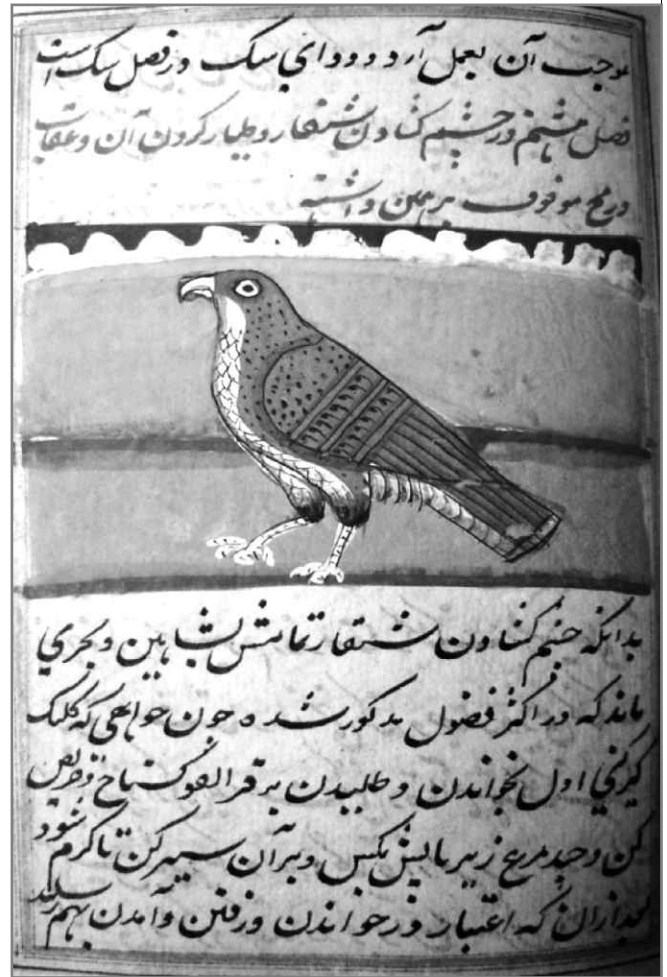 موجب آن بعمل آرد و دوای سنگ در فصل سنگ است
فصل هشتم در چشم کشادن شنقار و طیار کردن آن و عقاب
درمج موقوف برهمن داشته
بدانکه چشم کشادن شنقار تمامش بشاهین و بحری
ماند که در اکثر فضول مذکور شده چون خواهی که کلنک
کیرنی اول بخواندن و طلبیدن بر قراالقو کستاخ و حریص
کن و چند مرغ زیر پایش بکش و بر آن سیر کن تا کرم شود
بعد ازان که اعتبار در خواندن و رفتن و آمدن بهم رسد